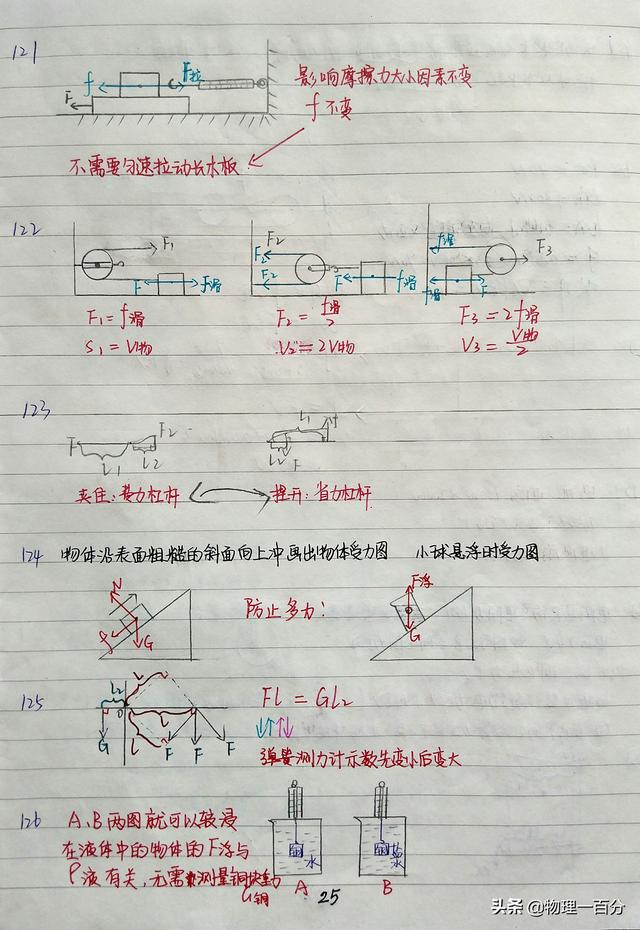 121
f
F拉
F
影响摩擦力大小因素不变
f不变
不需要匀速拉动长木板
122
F1
F
f滑
F1=f滑
S1=V物
F2
F2
F2
F
f滑
F2=f滑/2
V2=2V物
f滑
F3
f滑
F
F3=2f滑
V3=V物/2
123
F
F2
L1
L2
L1
f
L2
F
夹住:费力杠杆
捏开:省力杠杆
124 物体沿表面粗糙的斜面向上冲画出物体受力图 小球悬浮时受力图
N
f
G
防止多力:
F浮
G
125
L2
O
G
L
L
L
F
F
F
Fl=Gl2
弹簧测力计示数先变小后变大
126
A、B两图就可以较浸
在液体中的物体的F浮与
ρ液有关,无需测量铜块的
G铜
铜
水
A
铜
盐水
B
25
头条 @物理一百分